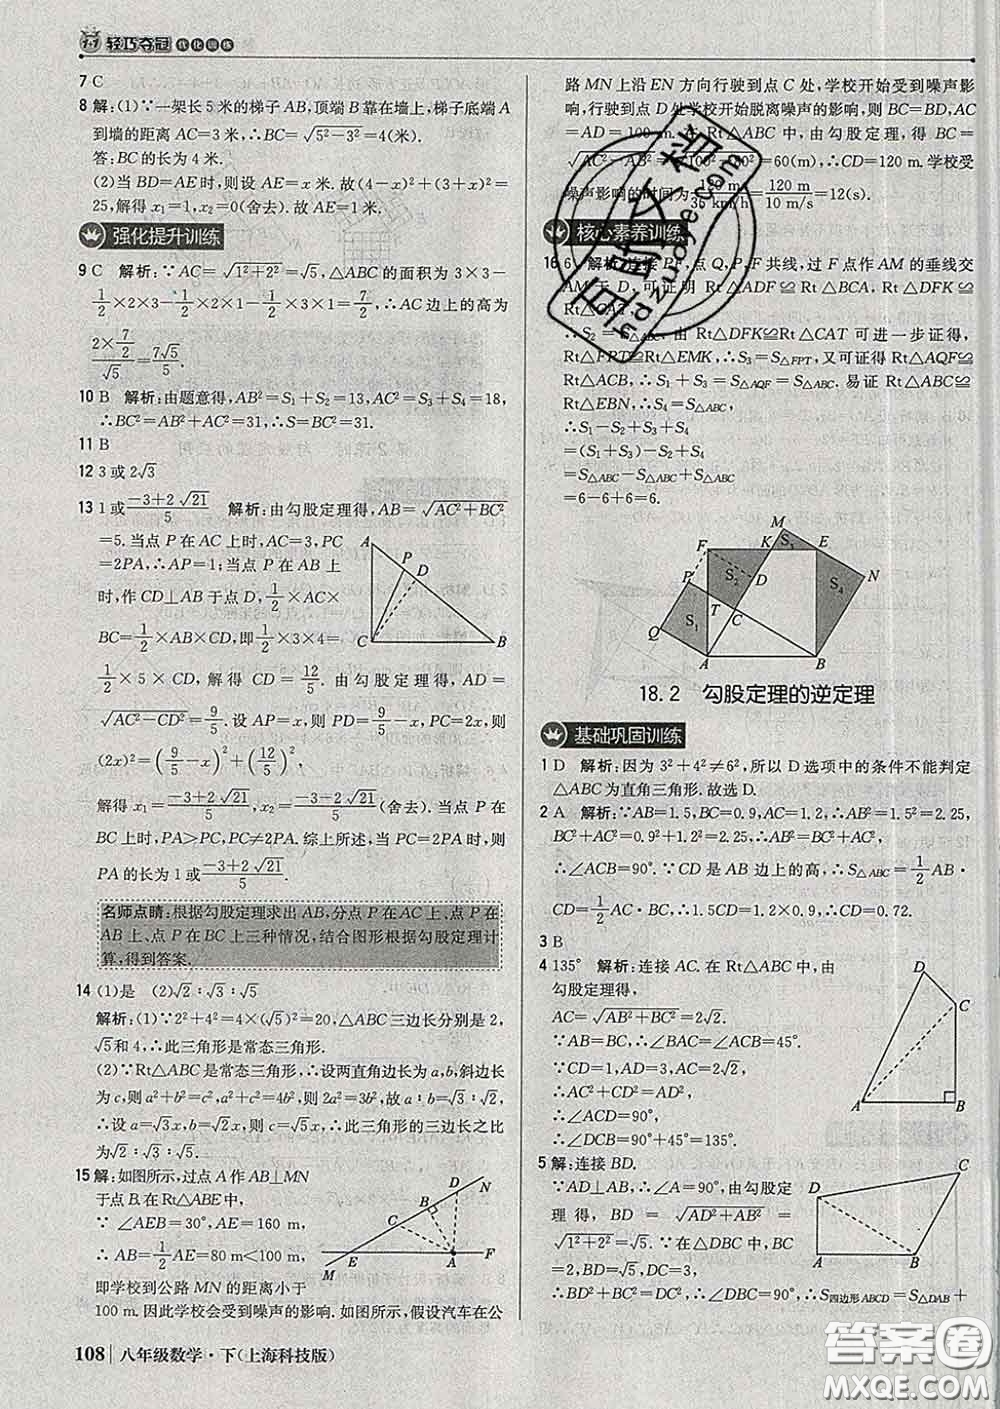 轻巧夺冠 优化训练
7 C
8 解:(1)∵一架长5米的梯子AB,顶端B靠在墙上,梯子底端A
到墙的距离AC=3米,∴BC=√(5²-3²)=4(米).
答:BC的长为4米.
(2)当BD=AE时,则设AE=x米.故(4-x)²+(3+x)²=
25,解得x₁=1,x₂=0(舍去).故AE=1米.
强化提升训练
9 C 解析:∵AC=√(1²+2²)=√5,△ABC的面积为3×3-
1/2×2×3-1/2×1×2-1/2×3×1=7/2,∴AC边上的高为
(2×7/2)/√5=7√5/5.
10 B 解析:由题意得,AB²=S₁+S₂=13,AC²=S₃+S₄=18,
∴BC²=AB²+AC²=31.∴BC²=31.
11 B
12 3或2√3
13 1或(-3+2√21)/5 解析:由勾股定理得,AB=√(AC²+BC²)
=5.当点P在AC上时,AC=3,PC
=2PA,∴PA=1;当点P在AB上
时,作CD⊥AB于点D,1/2×AC×
BC=1/2×AB×CD,即1/2×3×4=
1/2×5×CD,解得CD=12/5.由勾股定理得,AD=
√(AC²-CD²)=9/5.设PA=x,则PD=9/5-x,PC=2x,则
(2x)²=(9/5-x)²+(12/5)²,
解得x₁=(-3+2√21)/5,x₂=(-3-2√21)/5(舍去).当点P在
BC上时,PA>PC,PC≠2PA.综上所述,当PC=2PA时,则
PA的长为1或(-3+2√21)/5.
名师点睛:根据勾股定理求出AB,分点P在AC上、点P在
AB上、点P在BC上三种情况,结合图形根据勾股定理计
算,得到答案.
14 (1)是 (2)√2∶√3∶√5
解析:(1)∵2²+4²=4×(√5)²=20,△ABC三边长分别是2,
√5和4,∴此三角形是常态三角形.
(2)∵Rt△ABC是常态三角形,∴设两直角边长为a,b,斜边长
为c,则a²+b²=c²,a²+c²=4b²,则2a²=3b²,故a∶b=√3∶√2,
∴设a=√3x,b=√2x,则c=√5x,∴此三角形的三边长之比
为√2∶√3∶√5.
15 解:如图所示,过点A作AB⊥MN
于点B.在Rt△ABE中,
∵∠AEB=30°,AE=160 m,
∴AB=1/2AE=80 m<100 m,
即学校到公路MN的距离小于
100 m.因此学校会受到噪声的影响.如图所示,假设汽车在公
A B C P D
M E C B D N A F
108 八年级数学·下(上海科技版)
路MN上沿EN方向行驶到点C处,学校开始受到噪声影
响,行驶到点D处学校开始脱离噪声的影响,则BC=BD,AC
=AD=100 m.在Rt△ABC中,由勾股定理,得BC=
√(AC²-AB²)=√(100²-80²)=60(m),∴CD=120 m.学校受
噪声影响的时间为120 m/36 km/h=120 m/10 m/s=12(s).
核心素养训练
16 6 解析:连接PF,点Q,P,F共线,过F点作AM的垂线交
AM于D,可证明Rt△ADF≌Rt△BCA,Rt△DFK≌
Rt△CAT,
∴S₂=S△ABC.由Rt△DFK≌Rt△CAT可进一步证得,
Rt△FPT≌Rt△EMK,∴S₃=S△FPT,又可证得Rt△AQF≌
Rt△ACB,∴S₁+S₃=S△AQF=S△ABC.易证Rt△ABC≌
Rt△EBN,∴S₄=S△ABC,
∴S₁-S₂+S₃+S₄
=(S₁+S₃)-S₂+S₄
=S△ABC-S△ABC+S△ABC
=6-6+6=6.
F K M E P S₃ S₂ D N T C S₄ Q S₁ A B
18.2 勾股定理的逆定理
基础巩固训练
1 D 解析:因为3²+4²≠6²,所以D选项中的条件不能判定
△ABC为直角三角形.故选D.
2 A 解析:∵AB=1.5,BC=0.9,AC=1.2,∴AB²=1.5²=2.25,
BC²+AC²=0.9²+1.2²=2.25,∴AB²=BC²+AC²,
∴∠ACB=90°.∵CD是AB边上的高,∴S△ABC=1/2AB·
CD=1/2AC·BC,1.5CD=1.2×0.9,∴CD=0.72.
3 B
4 135° 解析:连接AC.在Rt△ABC中,由
勾股定理得,
AC=√(AB²+BC²)=2√2.
∵AB=BC,∴∠BAC=∠ACB=45°.
∵CD=1,AD=3,AC=2√2,
∴AC²+CD²=AD²,
∴∠ACD=90°,
∴∠DCB=90°+45°=135°.
D C A B
5 解:连接BD.
∵AD⊥AB,∴∠A=90°,由勾股定
理得,BD=√(AD²+AB²)=
√(1²+2²)=√5.∵在△DBC中,
DB=√5,BC=2,CD=3,
∴BD²+BC²=CD²,∴∠DBC=90°,∴S四边形ABCD=S△DAB+
C D A B
百助文档
bdzuoye.com
答案圈
MXQE.COM